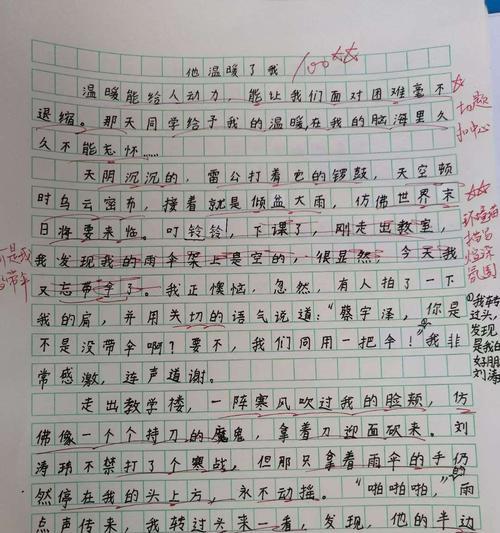 他温暖了我 100
温暖能给人动力，能让我们面对困难毫不
退缩。那天同学给予我的温暖，在我的脑海里久
久不能忘怀……
天阴沉沉的，雷公打着它的锣鼓，天空顿
时乌云密布，接着就是倾盆大雨，仿佛世界末
日将要来临。叮铃铃，下课了，刚走出教室，
我发现我的雨伞架上是空的，很显然，今天我
又忘带伞了。我正懊恼，忽然，有人拍了一下
我的肩，并用关切的语气说道："蔡宇泽，你是
不是没带伞啊？要不，我们同用一把伞！"我非
常感激，连声道谢。
走出教学楼，一阵寒风吹过我的脸颊，仿
佛像一个个持刀的魔鬼，拿着刀迎面砍来。刘
涛玮不禁打了个寒战，但那只拿着雨伞的手仍
然停在我的头上方，永不动摇。"啪啪啪，"雨的
点声传来，我转过头来一看，发现，他的半边
扣中心
我转
过头，
发现
是我的
好朋
刘涛